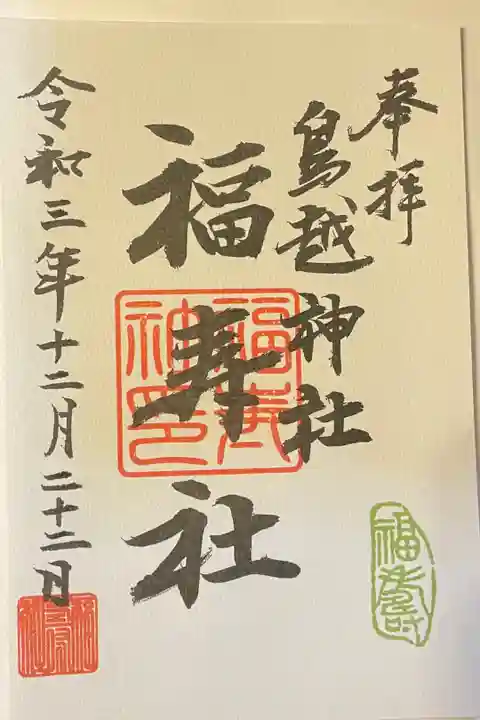 奉拝
鳥越神社
福寿社
福寿社印
令和三年十二月二十二日
福寿